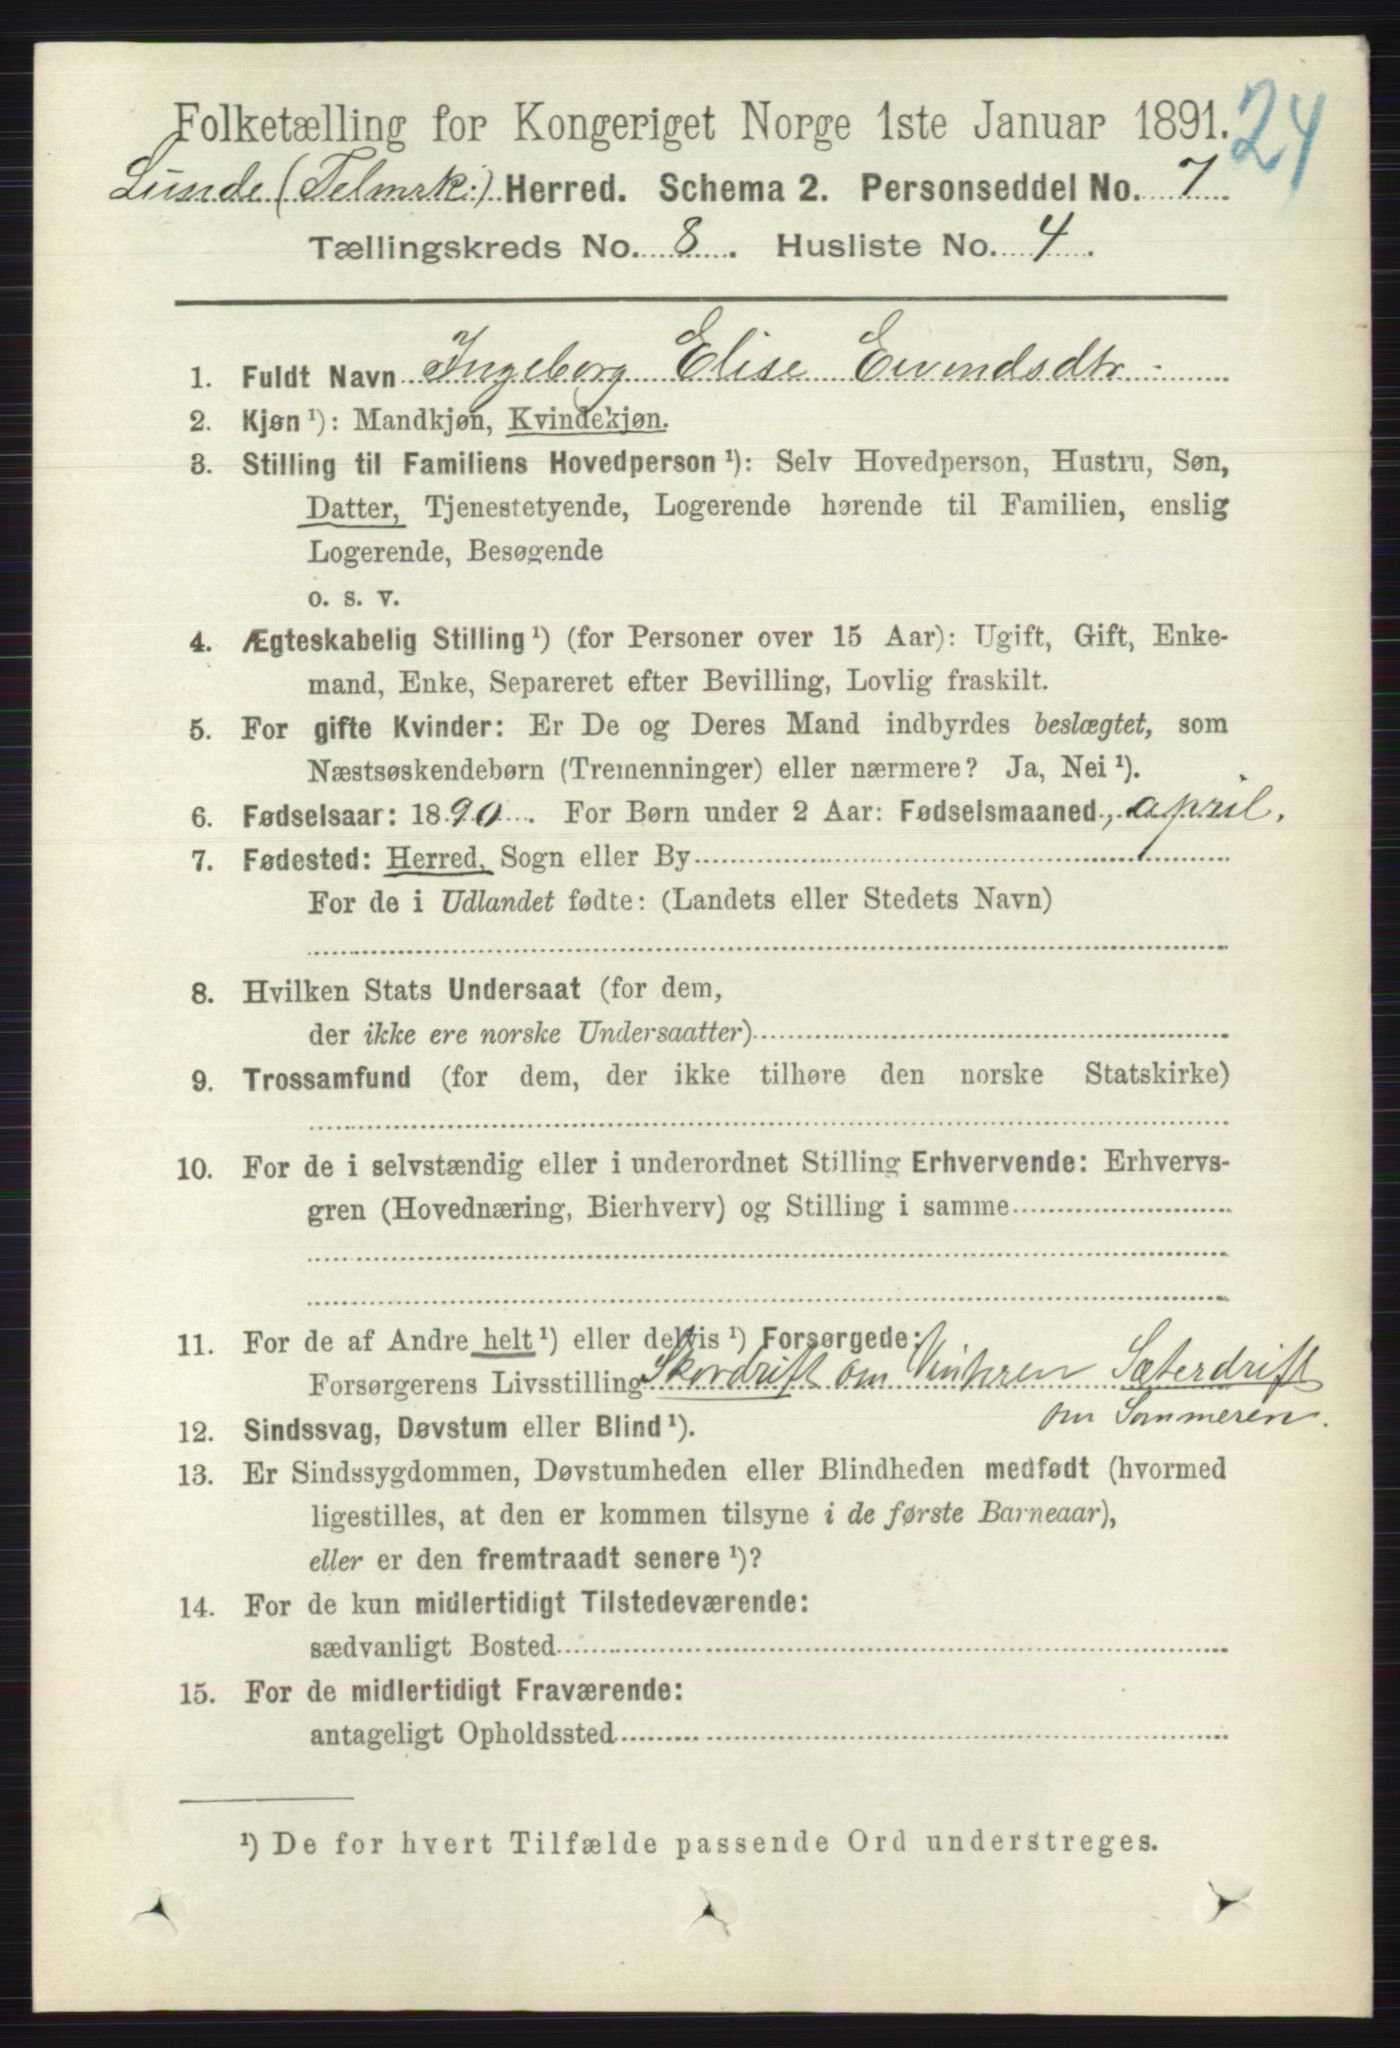 Folketælling for Kongeriget Norge 1ste Januar 1891.
24
Lunde (Telmrk:) Herred. Schema 2. Personseddel No. 7
Tællingskreds No. 8. Husliste No. 4.
1. Fuldt Navn Ingeborg Elise Eivindsdtr.
2. Kjøn ¹): Mandkjøn, Kvindekjøn.
3. Stilling til Familiens Hovedperson ¹): Selv Hovedperson, Hustru, Søn,
Datter, Tjenestetyende, Logerende hørende til Familien, enslig
Logerende, Besøgende
o. s. v.
4. Ægteskabelig Stilling ¹) (for Personer over 15 Aar): Ugift, Gift, Enke-
mand, Enke, Separeret efter Bevilling, Lovlig fraskilt.
5. For gifte Kvinder: Er De og Deres Mand indbyrdes beslægtet, som
Næstsøskendebørn (Tremenninger) eller nærmere? Ja, Nei ¹).
6. Fødselsaar: 1890. For Børn under 2 Aar: Fødselsmaaned, april.
7. Fødested: Herred, Sogn eller By
For de i Udlandet fødte: (Landets eller Stedets Navn)
8. Hvilken Stats Undersaat (for dem,
der ikke ere norske Undersaatter)
9. Trossamfund (for dem, der ikke tilhøre den norske Statskirke)
10. For de i selvstændig eller i underordnet Stilling Erhvervende: Erhvervs-
gren (Hovednæring, Bierhverv) og Stilling i samme
11. For de af Andre helt ¹) eller delvis ¹) Forsørgede:
Forsørgerens Livsstilling Skovdrift om Vinteren Sæterdrift
om Sommeren.
12. Sindssvag, Døvstum eller Blind ¹).
13. Er Sindssygdommen, Døvstumheden eller Blindheden medfødt (hvormed
ligestilles, at den er kommen tilsyne i de første Barneaar),
eller er den fremtraadt senere ¹)?
14. For de kun midlertidigt Tilstedeværende:
sædvanligt Bosted
15. For de midlertidigt Fraværende:
antageligt Opholdssted
¹) De for hvert Tilfælde passende Ord understreges.